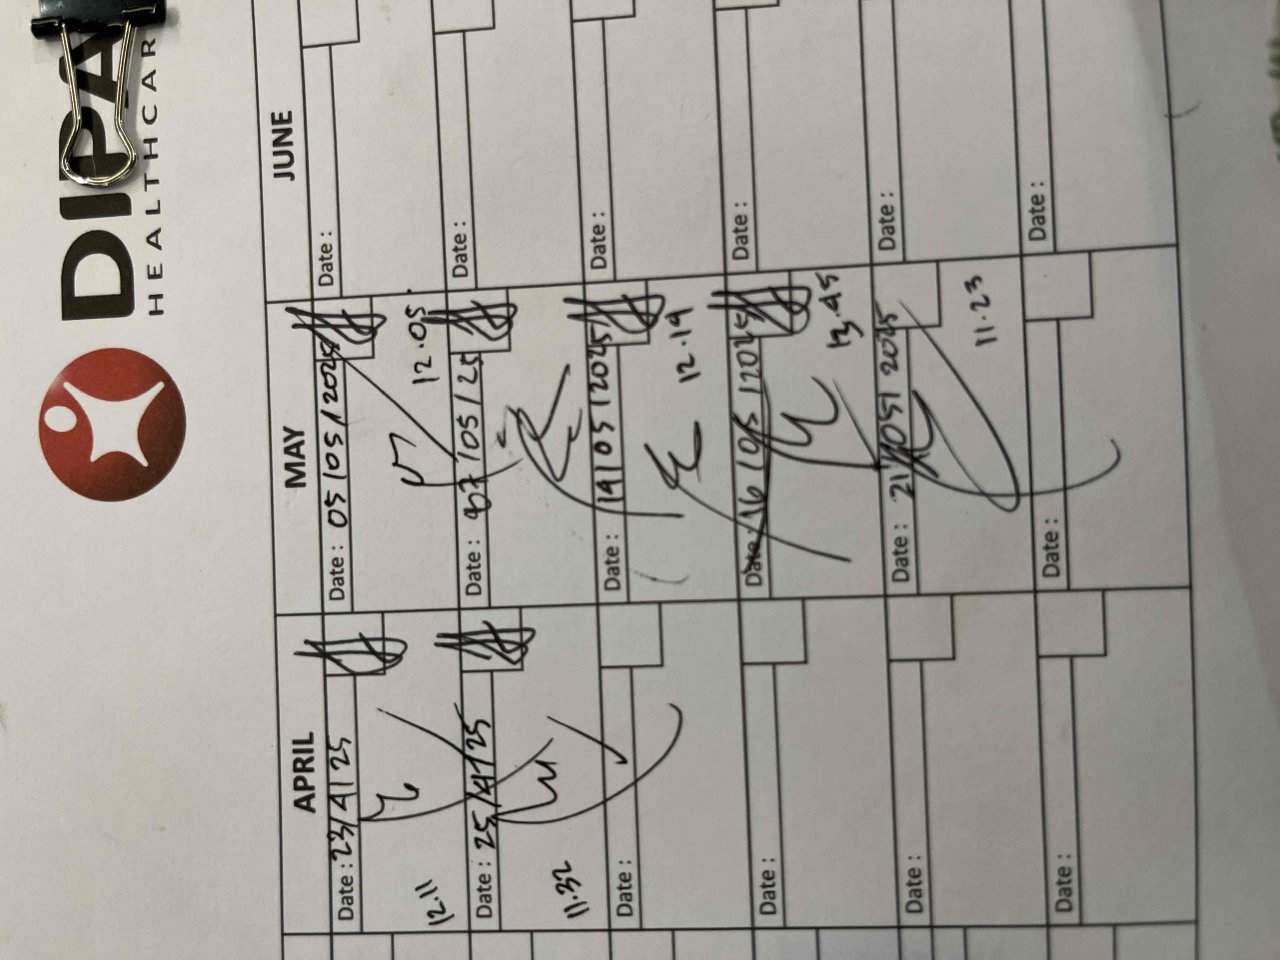 DIPA
HEALTHCAR
APRIL MAY JUNE
Date : 23/4/25 Date : 05/05/2025 Date :
12.11 12.05
Date : 25/4/25 Date : 07/05/25 Date :
11.32
Date : Date : 14/05/2025 Date :
12.19
Date : Date : 16/05/2025 Date :
13.45
Date : Date : 21/05/2025 Date :
11.23
Date : Date : Date :